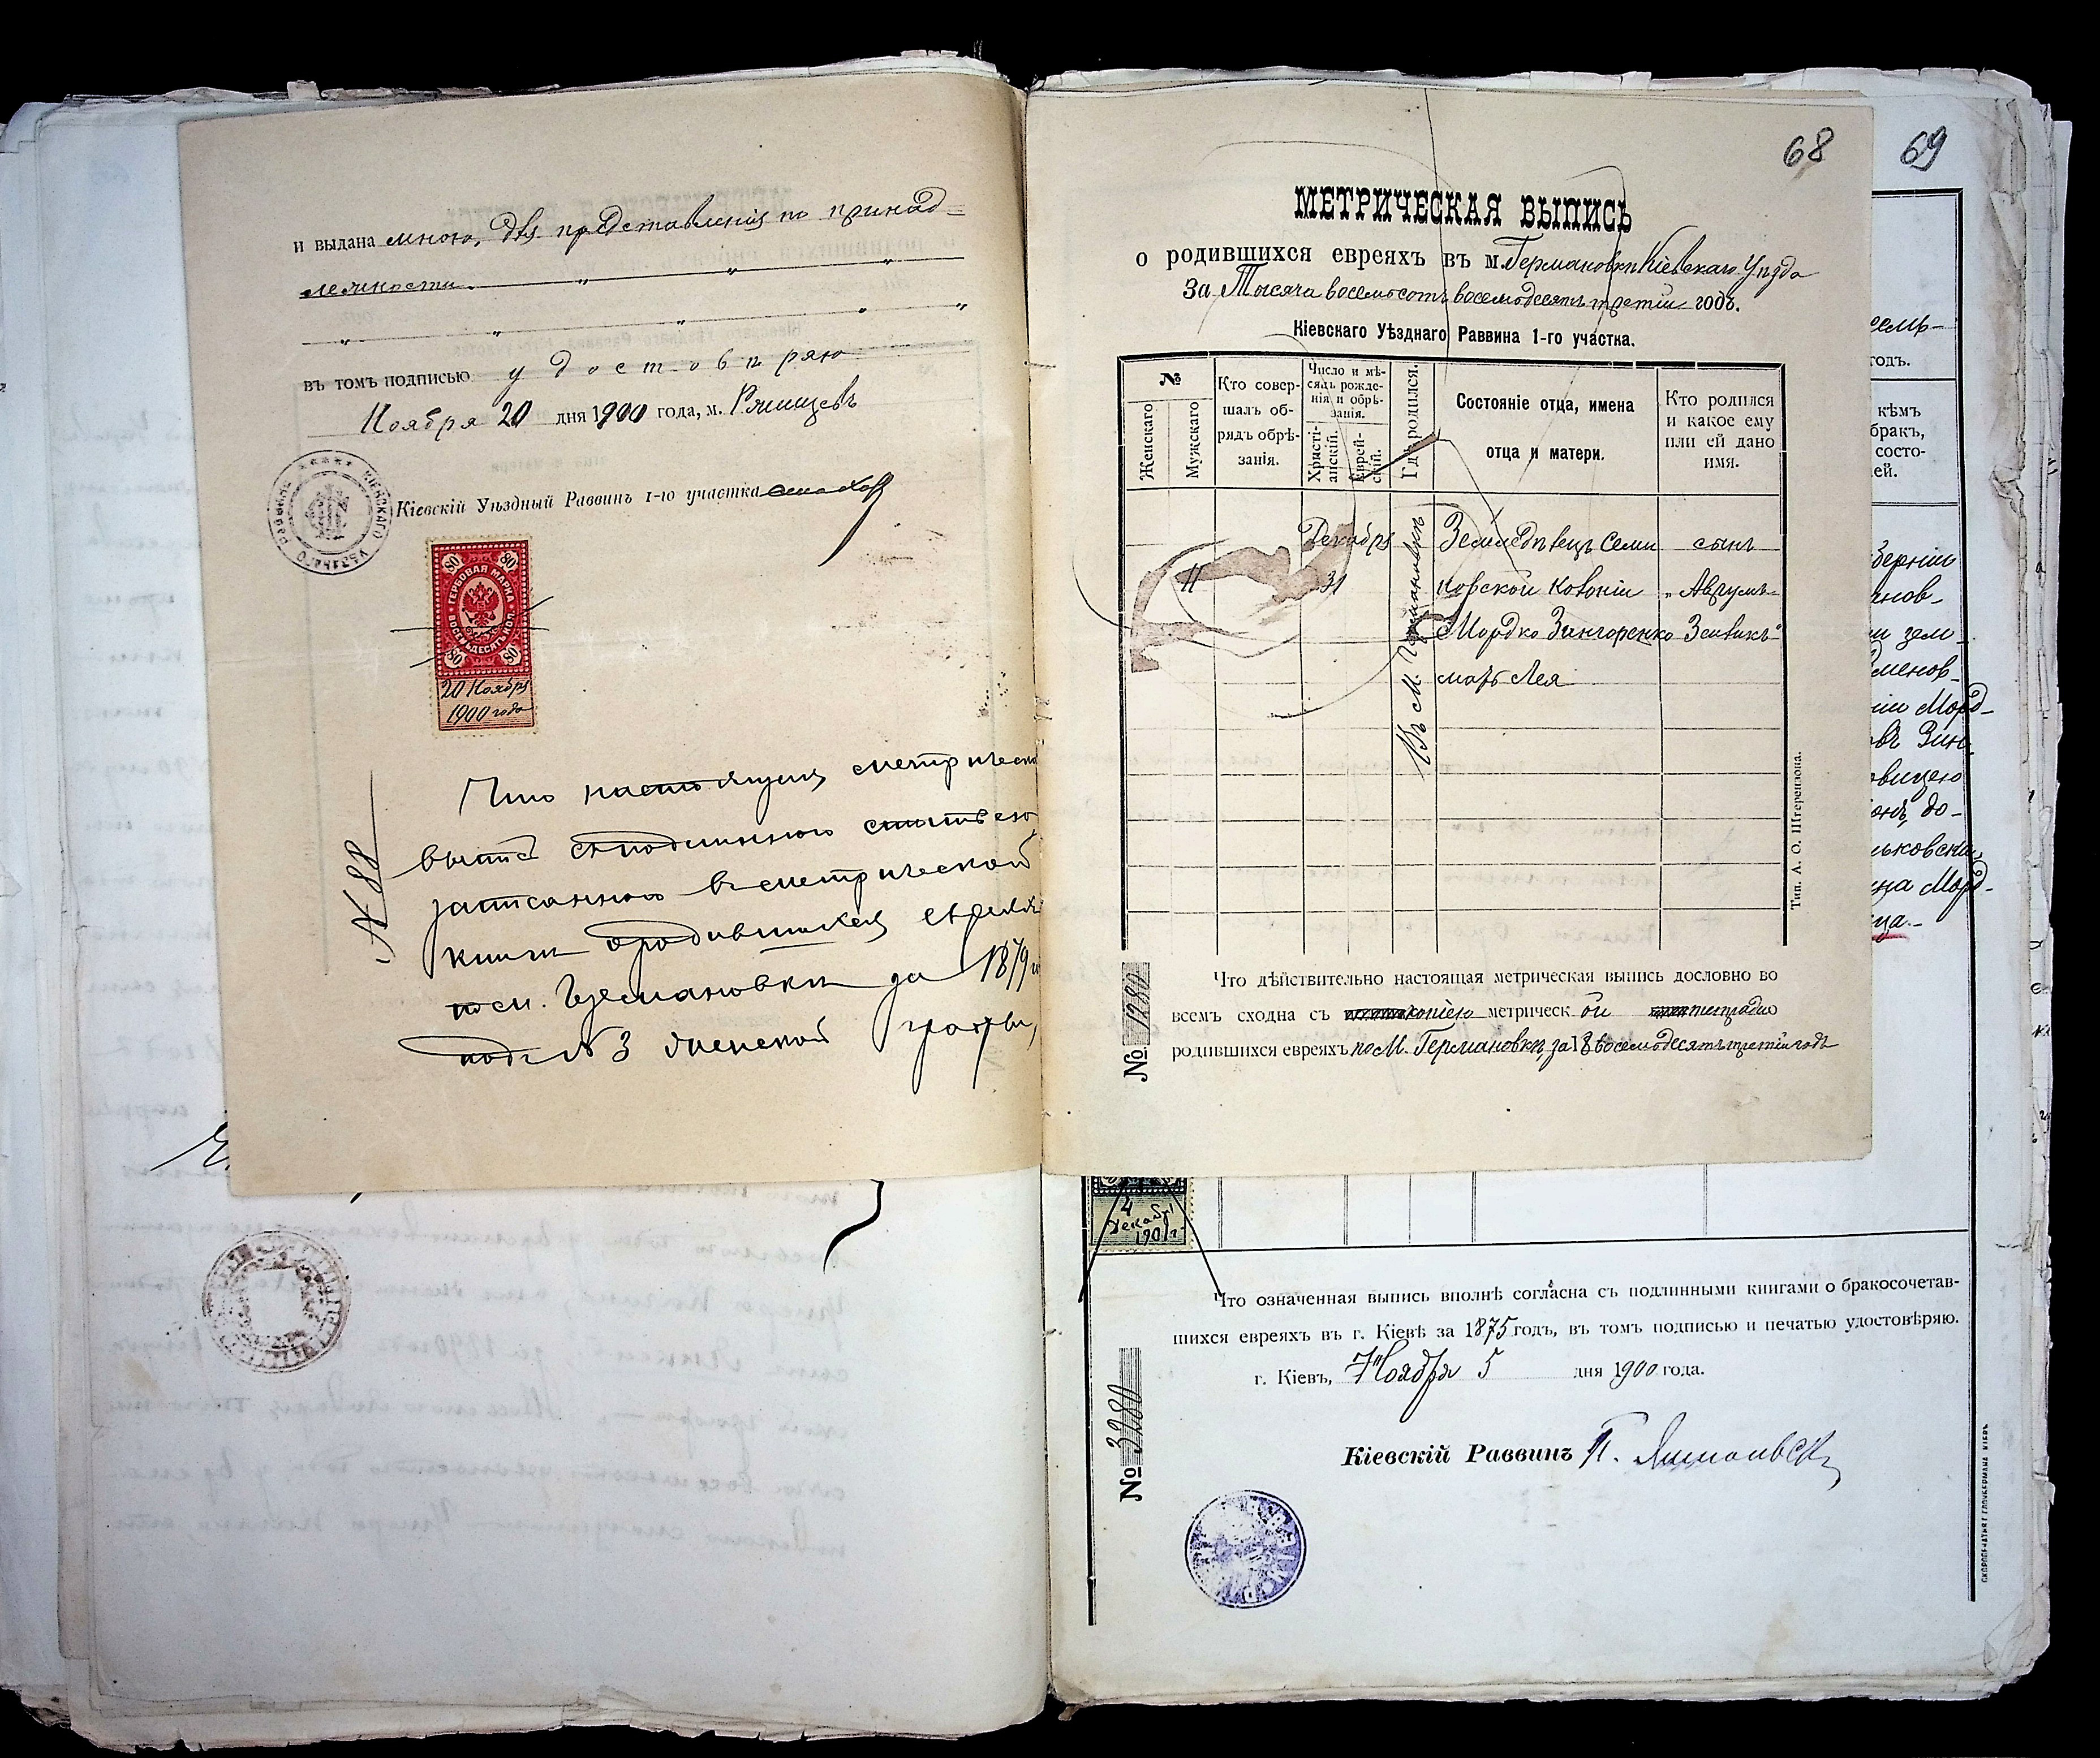 и выдана мною, для представленія по принад-
лежности " " "
" " " " "
въ томъ подписью удостовѣряю
Ноября 20 дня 1900 года, м. Ржищевъ
Кіевскій Уѣздный Раввинъ 1-го участка
КІЕВСКАГО УѢЗДНАГО
80 80
ГЕРБОВАЯ МАРКА
ВОСЕМЬДЕСЯТЪ КОП.
80 80
20 Ноября
1900 года
№ 88
Что настоящая метрическ
выпись
записанною въ метрической
книги о родившихся евреяхъ
по м. Германовки за 1879 г
подъ № 3 женской графы,
68
МЕТРИЧЕСКАЯ ВЫПИСЬ
о родившихся евреяхъ въ м. Германовкѣ Кіевскаго Уѣзда
За Тысяча восемьсотъ восемьдесятъ третій годъ.
Кіевскаго Уѣзднаго Раввина 1-го участка.
№
Женскаго
Мужскаго
Кто совер-
шалъ об-
рядъ обрѣ-
занія.
Число и мѣ-
сяцъ рожде-
нія и обрѣ-
занія.
Христі-
анскій.
Еврей-
скій.
Гдѣ родился.
Состояніе отца, имена
отца и матери.
Кто родился
и какое ему
или ей дано
имя.
11
Декабря
31
Въ м. Германовкѣ
Земледѣлецъ Семи
новской колоніи
Мордко Зингоренко
мать Лея
сынъ
„Аврумъ-
Зейликъ"
Тип. А. О. Штерензона.
№ 1280
Что дѣйствительно настоящая метрическая выпись дословно во
всемъ сходна съ копіею метрической тетрадью
родившихся евреяхъ по М. Германовкѣ, за 18 восемьдесятъ третій годъ
69
семь-
годъ.
кѣмъ
бракъ,
состо-
ей.
берніи
анов-
и зем
еменов-
ніи Морд-
овъ Зин-
овицею
до-
ьковска
на Морд-
ца.-
4
Декабря
1901 г.
Что означенная выпись вполнѣ согласна съ подлинными книгами о бракосочетав-
шихся евреяхъ въ г. Кіевѣ за 1875 годъ, въ томъ подписью и печатью удостовѣряю.
г. Кіевъ, Ноября 5 дня 1900 года.
№ 3280
Кіевскій Раввинъ
СКОРОПЕЧАТНЯ Г. ГЛОУБЕРМАНА КІЕВЪ